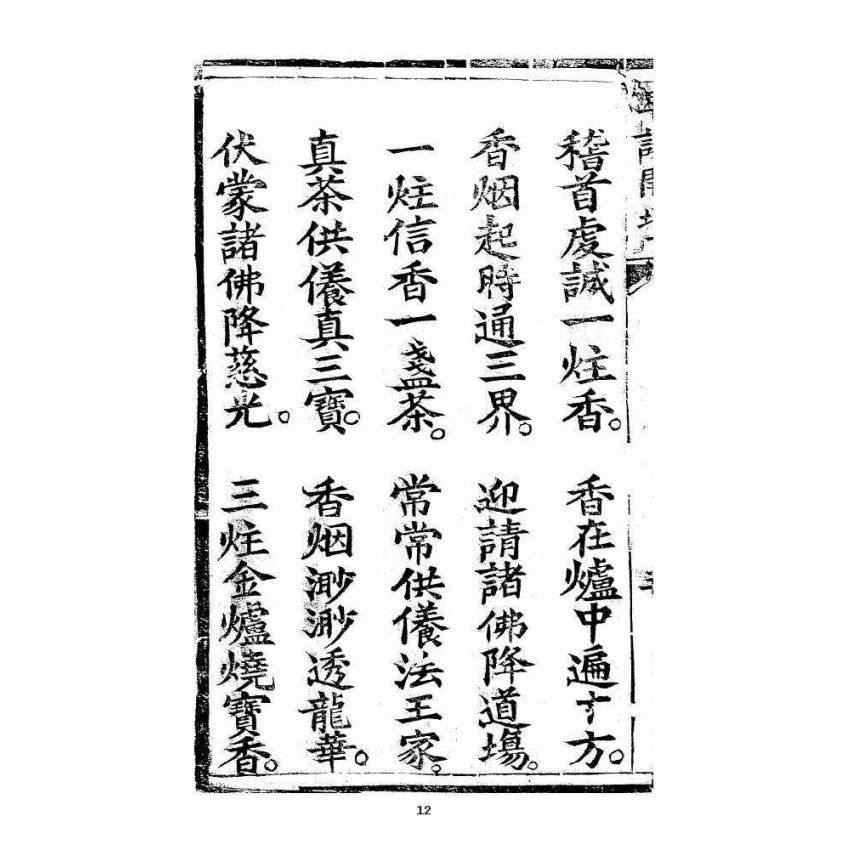 稽首虔誠一炷香。香在爐中遍十方。
香烟起時通三界。迎請諸佛降道塲。
一炷信香一盞茶。常常供養法王家。
真茶供養真三寶。香烟渺渺透龍華。
伏蒙諸佛降慈光。三炷金爐燒寶香。
12